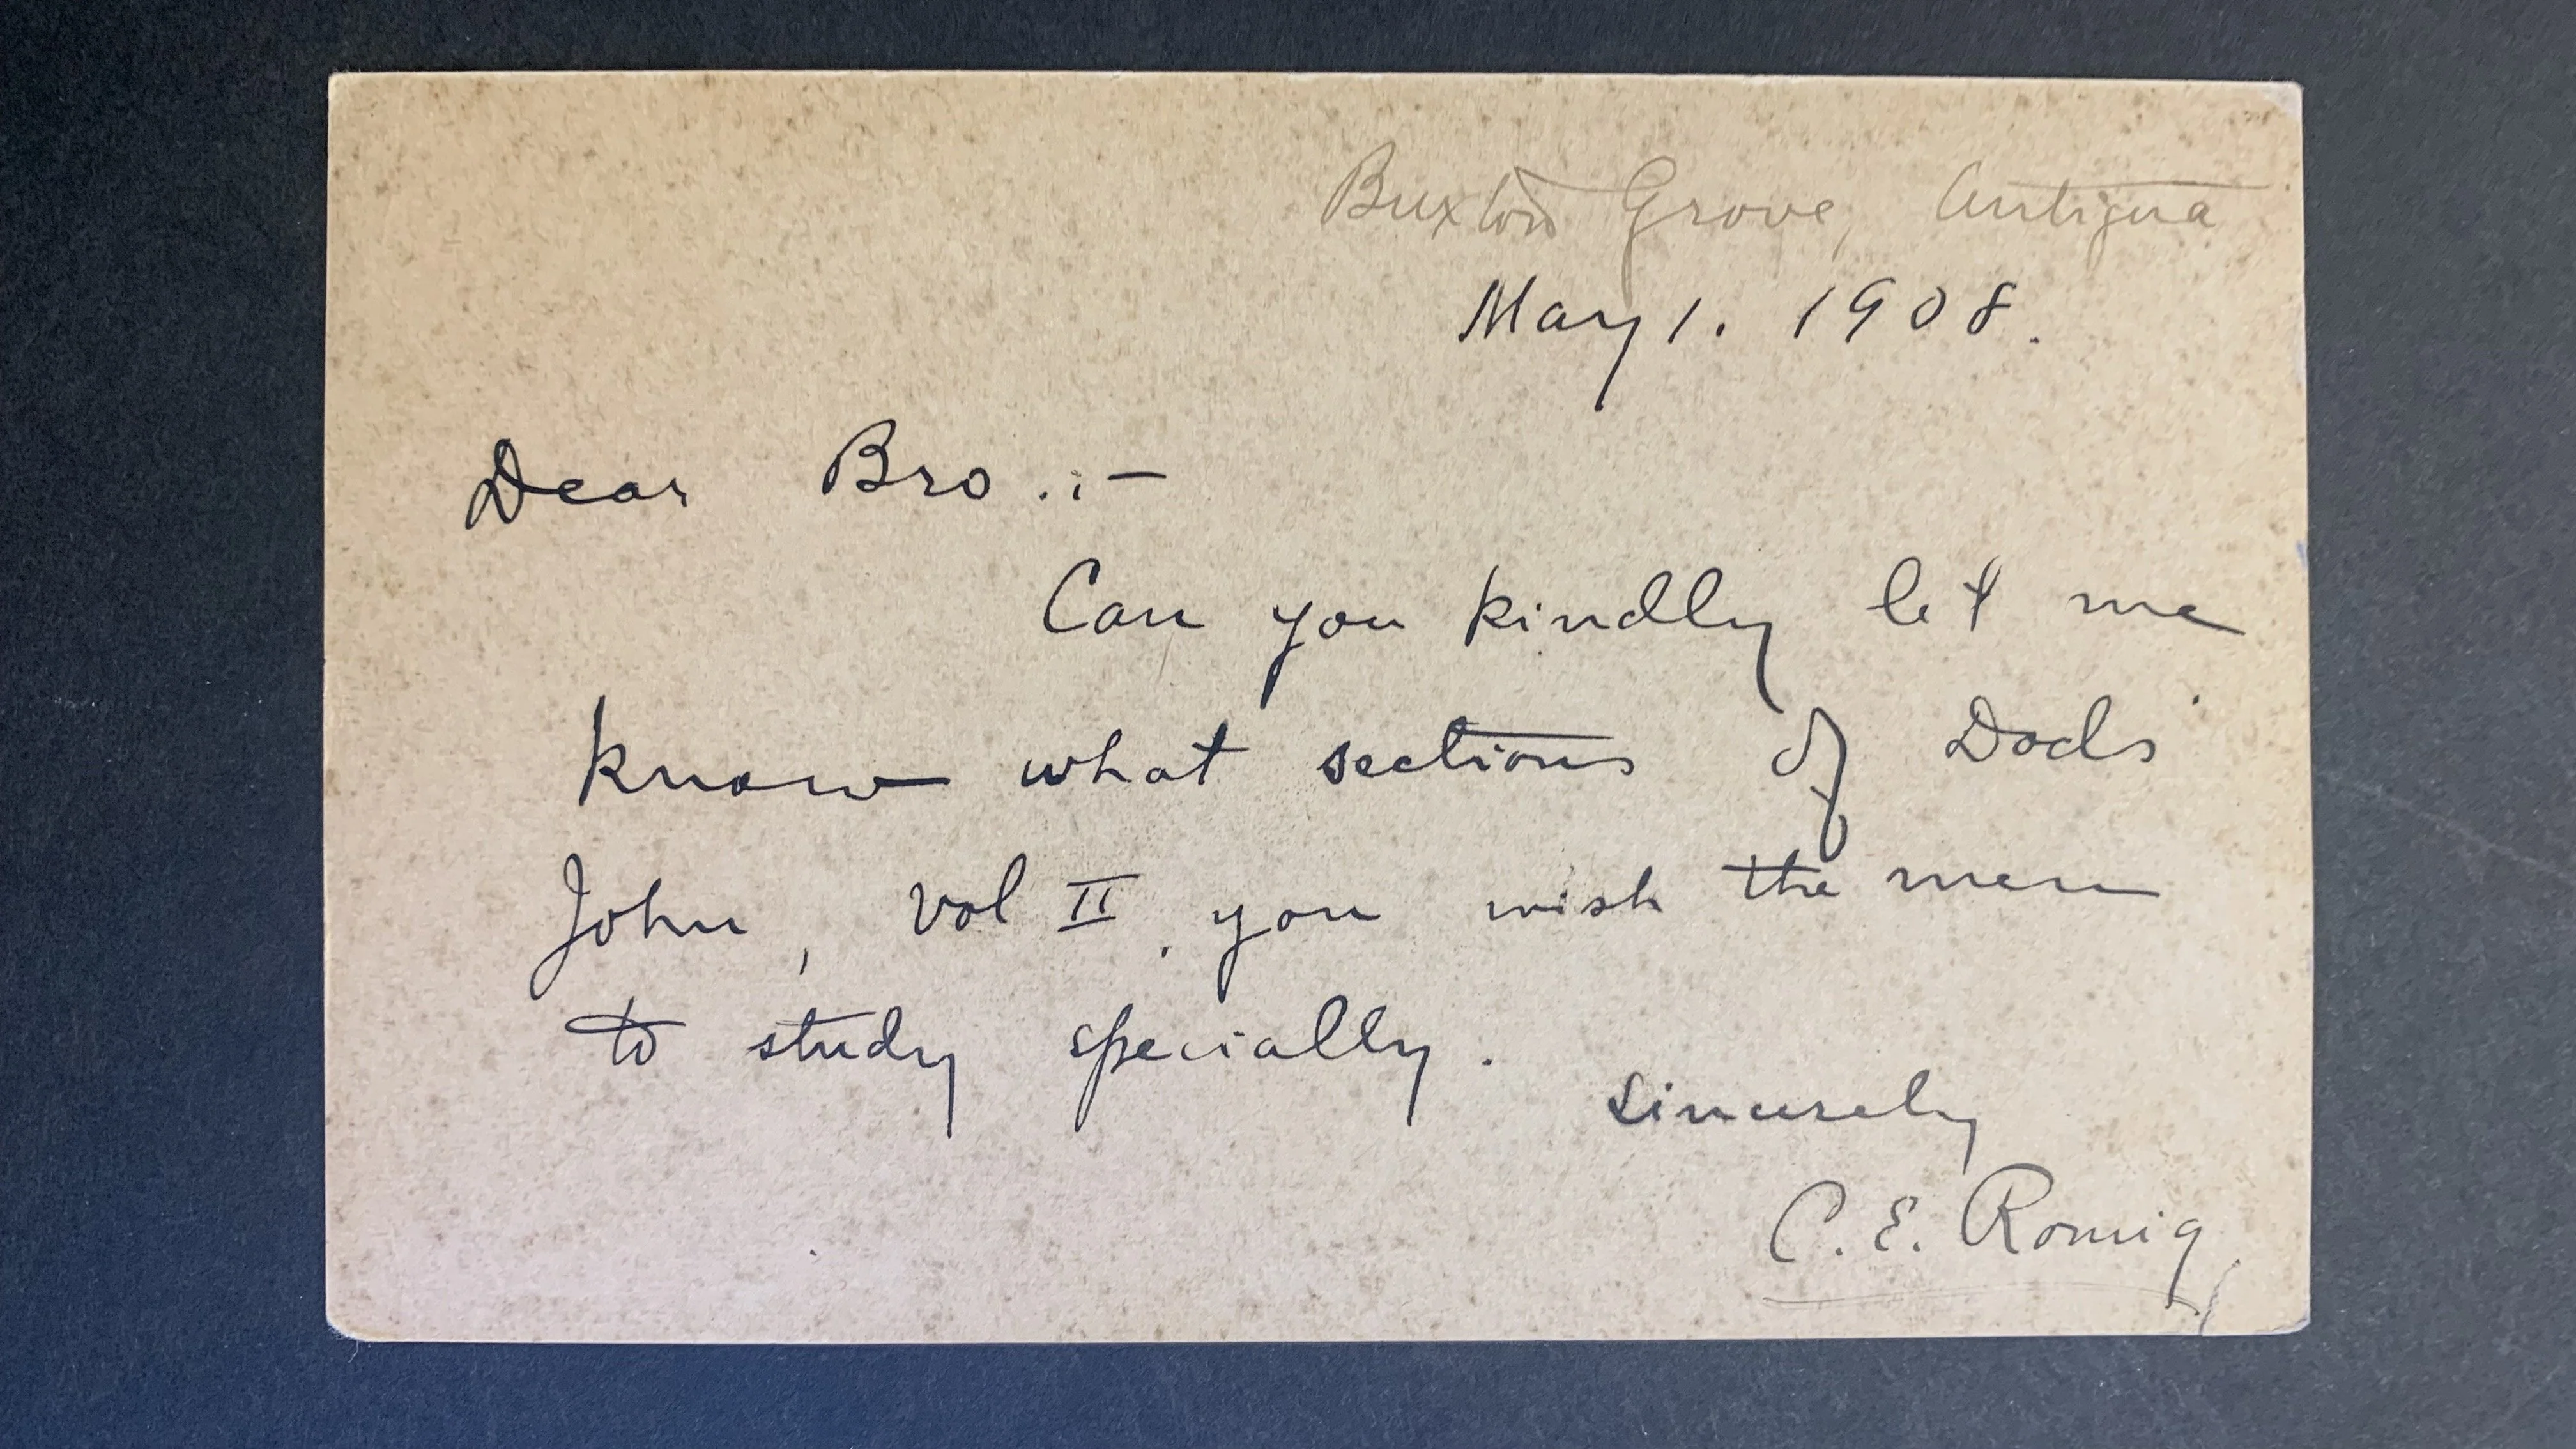 Buxton Grove, Antigua
May 1. 1908.
Dear Bro.:-
Can you kindly let me
know what sections of Dods'
John, vol II, you wish the men
to study specially.
Sincerely
C. E. Romig.